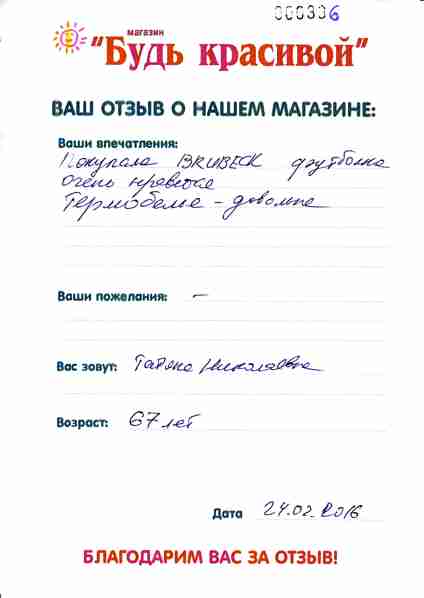 000336
магазин
"Будь красивой"
ВАШ ОТЗЫВ О НАШЕМ МАГАЗИНЕ:
Ваши впечатления:
Покупала BRUBECK футболка
очень нравится
Термобелье - довольна
Ваши пожелания: –
Вас зовут: Татьяна Николаевна
Возраст: 67 лет
Дата 24.02.2016
БЛАГОДАРИМ ВАС ЗА ОТЗЫВ!